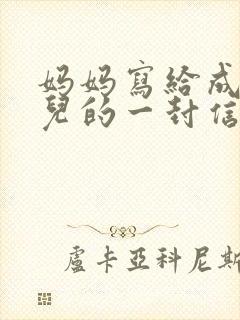 妈妈寫給成
兒的一封信
盧卡亞科尼斯